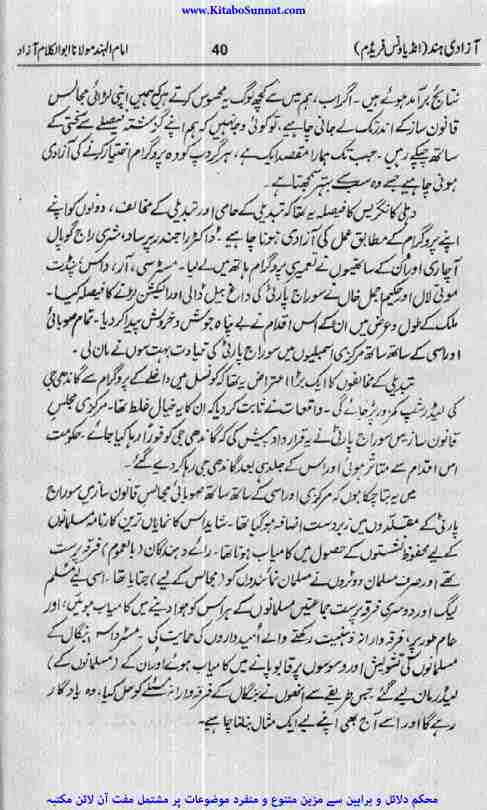 www.KitaboSunnat.com
آزادی ہند (انڈیا ونس فریڈم) 40 امام الہند مولانا ابوالکلام آزاد
نتائج برآمد ہوئے ہیں۔ اگر اب، ہم میں سے کچھ لوگ یہ محسوس کرتے ہیں کہ ہمیں اپنی لڑائی مجالس
قانون ساز کے اندر تک لے جانی چاہیے، تو کوئی وجہ نہیں کہ ہم اپنے گزشتہ فیصلے سے سختی کے
ساتھ چپکے رہیں۔ جب تک ہمارا مقصد ایک ہے، ہر گروپ کو وہ پروگرام اختیار کرنے کی آزادی
ہونی چاہیے جسے وہ سب سے بہتر سمجھتا ہے۔
دہلی کانگریس کا فیصلہ یہ تھا کہ تبدیلی کے حامی اور تبدیلی کے مخالف، دونوں کو اپنے
اپنے پروگرام کے مطابق عمل کی آزادی ہونا چاہیے۔ ڈاکٹر راجندر پرساد، شری راج گوپال
آچاری اور ان کے ساتھیوں نے تعمیری پروگرام ہاتھ میں لے لیا۔ مسٹر سی، آر، داس، پنڈت
موتی لال اور حکیم اجمل خاں نے سوراج پارٹی کی داغ بیل ڈالی اور الیکشن لڑنے کا فیصلہ کیا۔
ملک کے طول و عرض میں ان کے اس اقدام نے بے پناہ جوش و خروش پیدا کر دیا۔ تمام صوبائی
اور اسی کے ساتھ ساتھ مرکزی اسمبلیوں میں سوراج پارٹی کی قیادت بہت سوں نے مان لی۔
تبدیلی کے مخالفوں کا ایک بڑا اعتراض یہ تھا کہ کونسل میں داخلے کے پروگرام سے گاندھی جی
کی لیڈر شپ کمزور پڑ جائے گی۔ واقعات نے ثابت کر دیا کہ ان کا یہ خیال غلط تھا۔ مرکزی مجلس
قانون ساز میں سوراج پارٹی نے یہ قرارداد پیش کی کہ گاندھی جی کو فوراً رہا کیا جائے۔ حکومت
اس اقدام سے متاثر ہوئی اور اس کے جلد ہی بعد گاندھی جی رہا کر دیے گئے۔
میں یہ بتا چکا ہوں کہ مرکزی اور اسی کے ساتھ ساتھ صوبائی مجالس قانون ساز میں سوراج
پارٹی کے مقلدوں میں زبردست اضافہ ہو گیا تھا۔ شاید اس کا نمایاں ترین کارنامہ مسلمانوں
کے لیے محفوظ نشستوں کے حصول میں کامیاب ہونا تھا۔ رائے دہندگان (بالعموم) فرقہ پرست
تھے اور صرف مسلمان ووٹروں نے مسلمان نمائندوں کو (مجالس کے لیے) بتایا تھا۔ اسی لیے مسلم
لیگ اور دوسری فرقہ پرست جماعتیں مسلمانوں کے ہراس کو ہوا دینے میں کامیاب ہوئیں، اور
عام طور پر، فرقہ وارانہ ذہنیت رکھنے والے امیدواروں کی حمایت کی۔ مسٹر داس بنگال کے
مسلمانوں کی تشویش اور وسوسوں پر قابو پانے میں کامیاب ہوئے اور ان کے (مسلمانوں کے)
لیڈر مان لیے گئے۔ جس طریقے سے انھوں نے بنگال کے فرقہ وارانہ مسئلے کو حل کیا، وہ یادگار
رہے گا اور اسے آج بھی اپنے لیے ایک مثال بنانا چاہیے۔
محکم دلائل و براہین سے مزین متنوع و منفرد موضوعات پر مشتمل مفت آن لائن مکتبہ